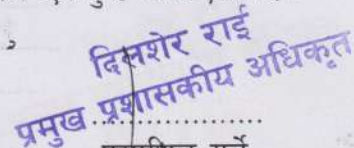 दिलशेर राई
प्रमुख प्रशासकीय अधिकृत
....................